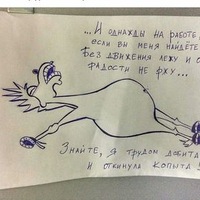 ...И ОДНАЖДЫ НА РАБОТЕ,
ЕСЛИ ВЫ МЕНЯ НАЙДЁТЕ
БЕЗ ДВИЖЕНИЯ ЛЕЖУ И С
РАДОСТИ НЕ РЖУ...
ЗНАЙТЕ, Я ТРУДОМ ДОБИТА
И ОТКИНУЛА КОПЫТА!